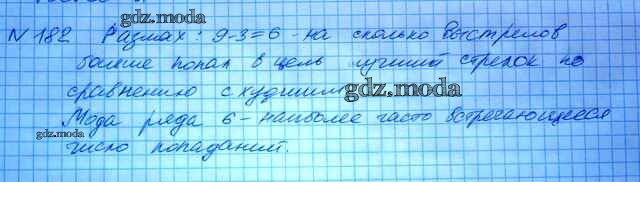 gdz.moda
N 182 Размах: 9-3=6 - на сколько выстрелов
больше попал в цель лучший стрелок по
сравнению с худшим gdz.moda
Мода ряда 6 - наиболее часто встречающееся
gdz.moda
число попаданий.